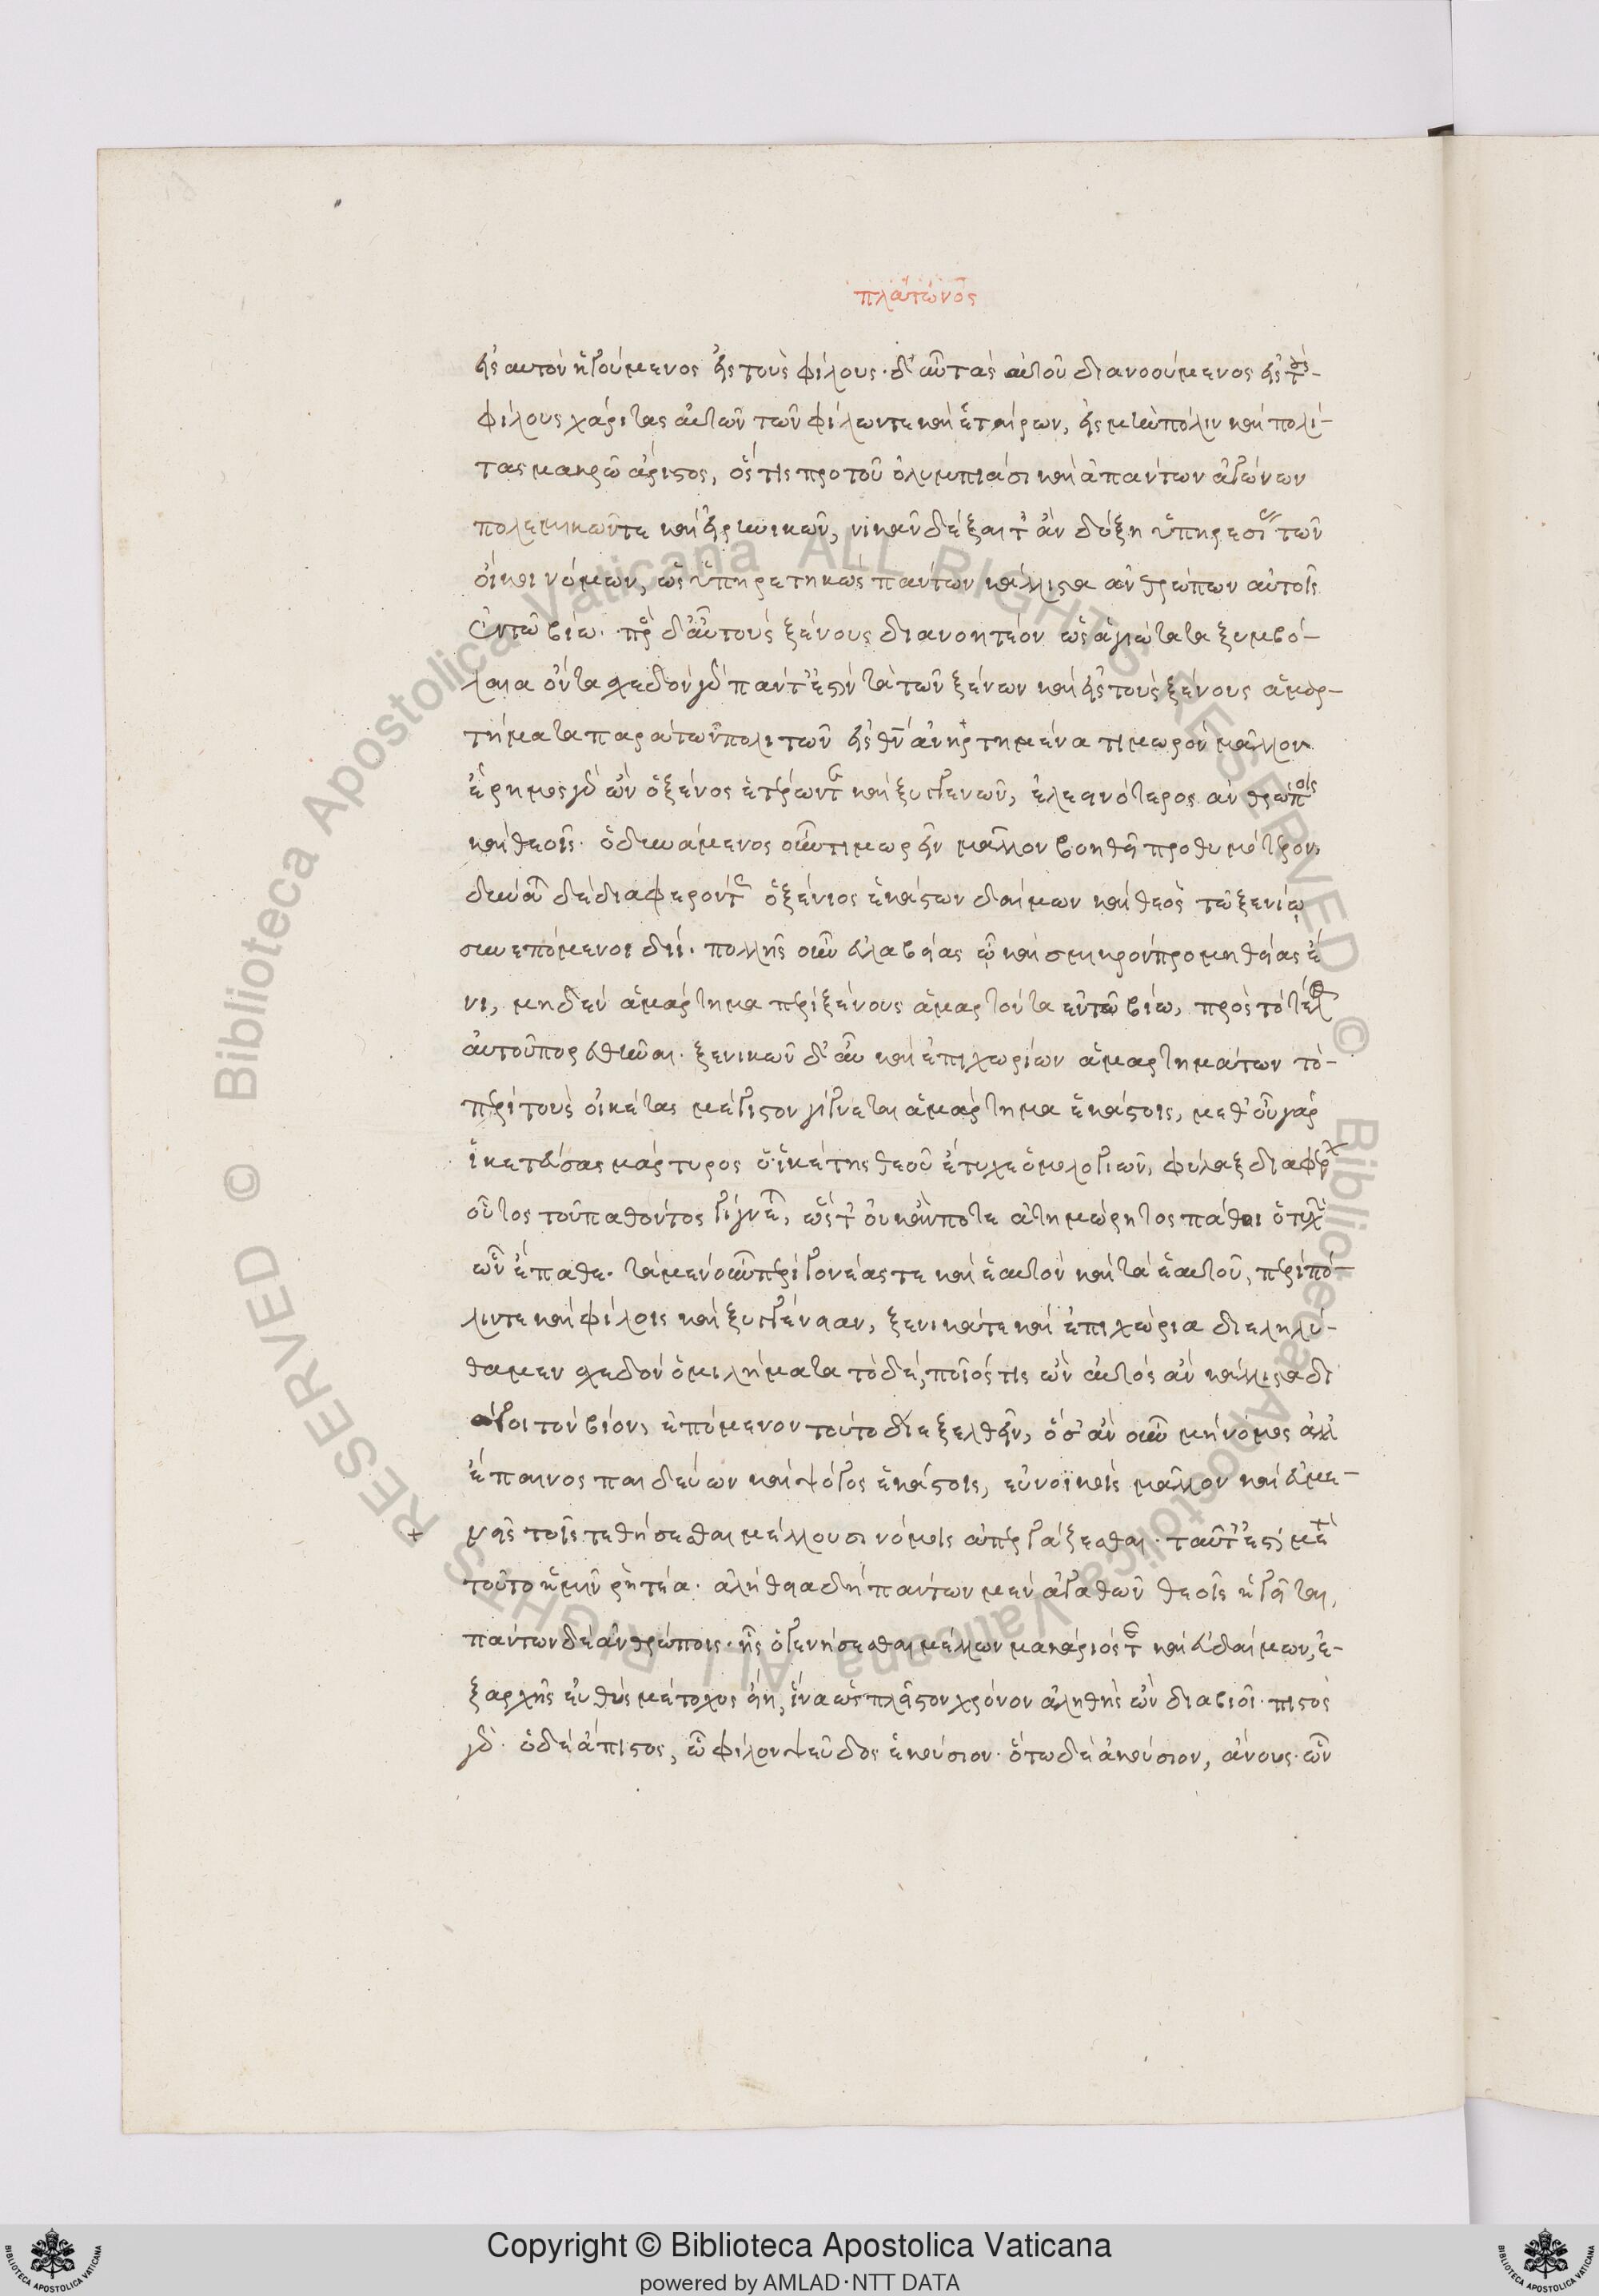 πλάτωνος
εἰς αυτὸν ἡγούμενος εἰς τοὺς φίλους· δι' αὖ τὰς αὐτοῦ διανοούμενος εἰς τοὺς
φίλους χάριτας αὐτῶν τῶν φίλων τε καὶ ἑταίρων, εἰς μὴν πόλιν καὶ πολί-
τας μακρῶ ἄριστος, ὅς τις προ τοῦ ὀλυμπιάσι καὶ ἁπάντων ἀγώνων
πολεμικῶν τε καὶ εἰρηνικῶν, νικᾶν δέξαιτ' ἂν δόξη ὑπηρεσίας τῶν
οἴκοι νόμων, ὡς ὑπηρετηκὼς πάντων κάλλιστα ἀνθρώπων αὐτοῖς
ἐν τῶ βίω· πρὸς δ' αὖ τοὺς ξένους διανοητέον ὡς ἁγιώτατα ξυμβό-
λαια ὄντα σχεδὸν γὰρ πάντ' ἐστὶ τὰ τῶν ξένων καὶ εἰς τοὺς ξένους ἁμαρ-
τήματα παρὰ τῶν πολιτῶν εἰς θεὸν ἀνηρτημένα τιμωρὸν μᾶλλον
ἔρημος γὰρ ὢν ὁ ξένος ἑταίρων τε καὶ ξυγγενῶν, ἐλεεινότερος ἀνθρώποις
καὶ θεοῖς· ὁ δυνάμενος οὖν τιμωρεῖν μᾶλλον βοηθεῖ προθυμότερον,
δύναται δὲ διαφερόντως ὁ ξένιος ἑκάστων δαίμων καὶ θεὸς τῶ ξενίω
συνεπόμενοι διί· πολλῆς οὖν εὐλαβείας ᾧ καὶ σμικρὸν προμηθείας ἐ
νι, μηδὲν ἁμάρτημα περὶ ξένους ἁμαρτόντα ἐν τῶ βίω, πρὸς τὸ τέλος
αὐτοῦ πορευθῆναι· ξενικῶν δ' αὖ καὶ ἐπιχωρίων ἁμαρτημάτων τὸ-
περὶ τοὺς οἰκέτας μέγιστον γίγνεται ἁμάρτημα ἑκάστοις, μεθ' οὗ γὰρ
ἱκετεύσας μάρτυρος ὁ ἱκέτης θεοῦ ἔτυχε ὁμολογιῶν, φύλαξ διαφέρων
οὗτος τοῦ παθόντος γίγνεται, ὥστ' οὐκ ἄν ποτε ἀτιμώρητος πάθοι ὁ τυχὼν
ὧν ἔπαθε· τὰ μὲν οὖν περὶ γονέας τε καὶ ἑαυτὸν καὶ τὰ ἑαυτοῦ, περὶ πό-
λιν τε καὶ φίλοις καὶ ξυγγένειαν, ξενικά τε καὶ ἐπιχώρια διεληλύ-
θαμεν σχεδὸν ὁμιλήματα τὸ δὲ, ποῖός τις ὢν αὐτὸς ἂν κάλλιστα δι
άγοι τὸν βίον, ἑπόμενον τούτο διεξελθεῖν, ὅσ' ἂν οὖν μὴ νόμος ἀλλ'
ἔπαινος παιδεύων καὶ ψόγος ἑκάστοις, εὐνοϊκοὺς μᾶλλον καὶ εὐμε-
νεῖς τοῖς τεθήσεσθαι μέλλουσι νόμοις ἀπεργάξεσθαι· ταῦτ' ἐστὶ μετὰ
τοῦτο ἡμῖν ῥητέα· ἀλήθεια δὴ πάντων μὲν ἀγαθῶν θεοῖς ἡγεῖται,
πάντων δὲ ἀνθρώποις· ἧς ὁ γενήσεσθαι μέλλων μακάριός τε καὶ εὐδαίμων, ἐ-
ξ ἀρχῆς εὐθὺς μέτοχος εἴη, ἵνα ὡς πλεῖστον χρόνον ἀληθὴς ὢν διαβιοῖ· πιστὸς
γάρ· ὁ δὲ ἄπιστος, ᾧ φίλον ψεῦδος ἑκούσιον· ὅτω δὲ ἀκούσιον, ἄνους· ὧν